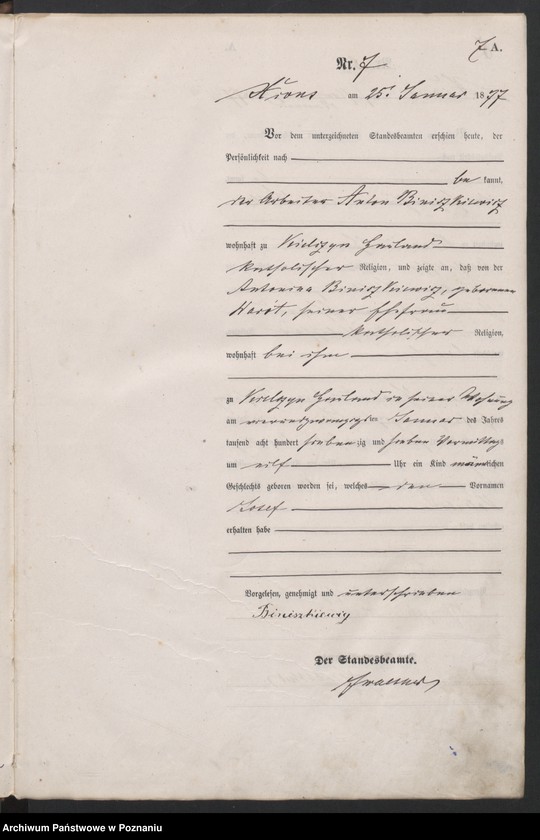 7 A.
Nr. 7
Xions am 25. Januar 1877
Vor dem unterzeichneten Standesbeamten erschien heute, der
Persönlichkeit nach
be kannt,
der Arbeiter Anton Biniszkiewicz
wohnhaft zu Hauland
katholischer Religion, und zeigte an, daß von der
Antonina Biniszkiewicz, geborenen
seiner Ehefrau
katholischer Religion,
wohnhaft bei ihm
zu Hauland in seiner Wohnung
am vierundzwanzigsten Januar des Jahres
tausend acht hundert siebenzig und sieben Vormittags
um eilf Uhr ein Kind männlichen
Geschlechts geboren worden sei, welches den Vornamen
Josef
erhalten habe
Vorgelesen, genehmigt und unterschrieben
Biniszkiewicz
Der Standesbeamte.
Archiwum Państwowe w Poznaniu